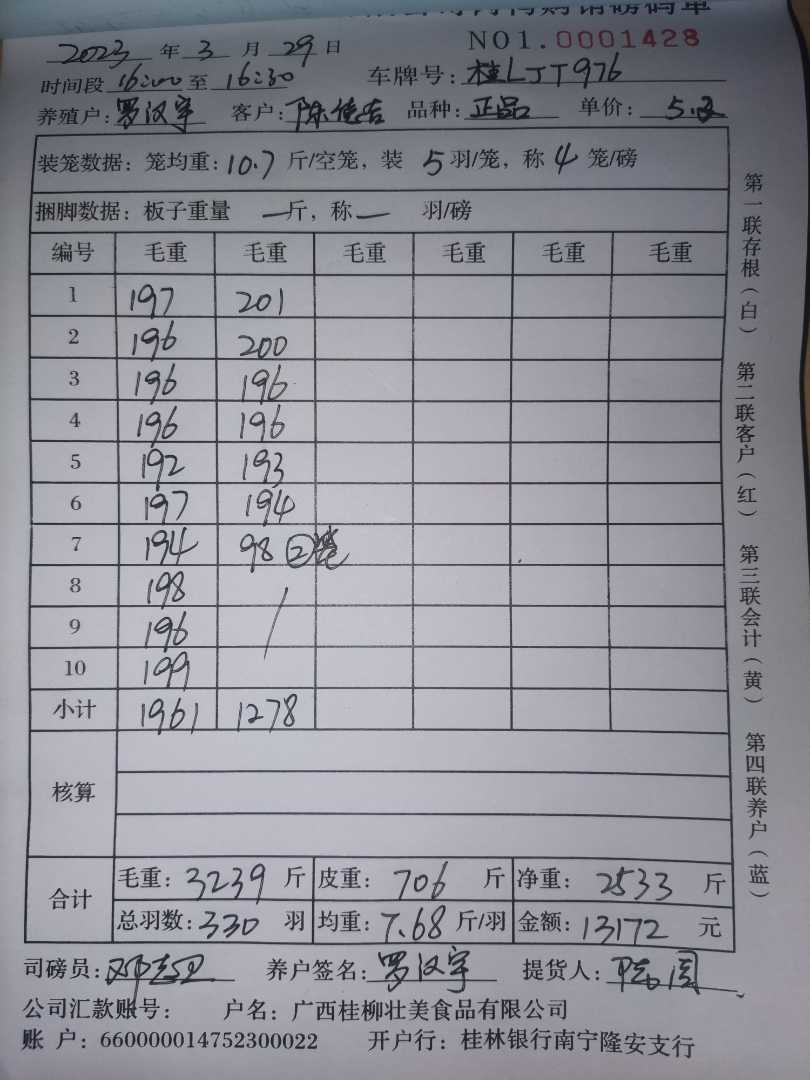 购销磅码单
2023 年 3 月 29 日 NO1.0001428
时间段 16:00 至 16:30 车牌号: 桂LJT976
养殖户: 罗汉宇 客户: 陈德吉 品种: 正品 单价: 5.2
装笼数据: 笼均重: 10.7 斤/空笼, 装 5 羽/笼, 称 4 笼/磅
捆脚数据: 板子重量 一 斤, 称 一 羽/磅
编号 毛重 毛重 毛重 毛重 毛重 毛重
1 197 201
2 196 200
3 196 196
4 196 196
5 192 193
6 197 194
7 194 98 ②笼
8 198
9 196
10 199
小计 1961 1278
核算
合计 毛重: 3239 斤 皮重: 706 斤 净重: 2533 斤
总羽数: 330 羽 均重: 7.68 斤/羽 金额: 13172 元
司磅员: 养户签名: 罗汉宇 提货人:
公司汇款账号: 户名: 广西桂柳壮美食品有限公司
账 户: 660000014752300022 开户行: 桂林银行南宁隆安支行
第一联存根(白) 第二联客户(红) 第三联会计(黄) 第四联养户(蓝)